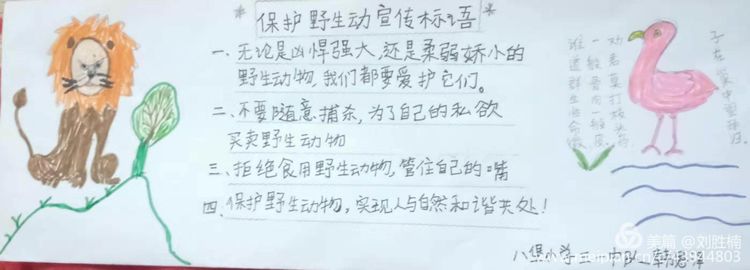 *保护野生动宣传标语*
一、无论是凶悍强大，还是柔弱娇小的
野生动物，我们都要爱护它们。
二、不要随意捕杀，为了自己的私欲
买卖野生动物
三、拒绝食用野生动物，管住自己的嘴
四、保护野生动物，实现人与自然和谐共处！
谁道群生性命微
一般骨肉一般皮
劝君莫打枝头鸟
子在巢中望母归
八集小学三 中队
美篇 @刘胜楠